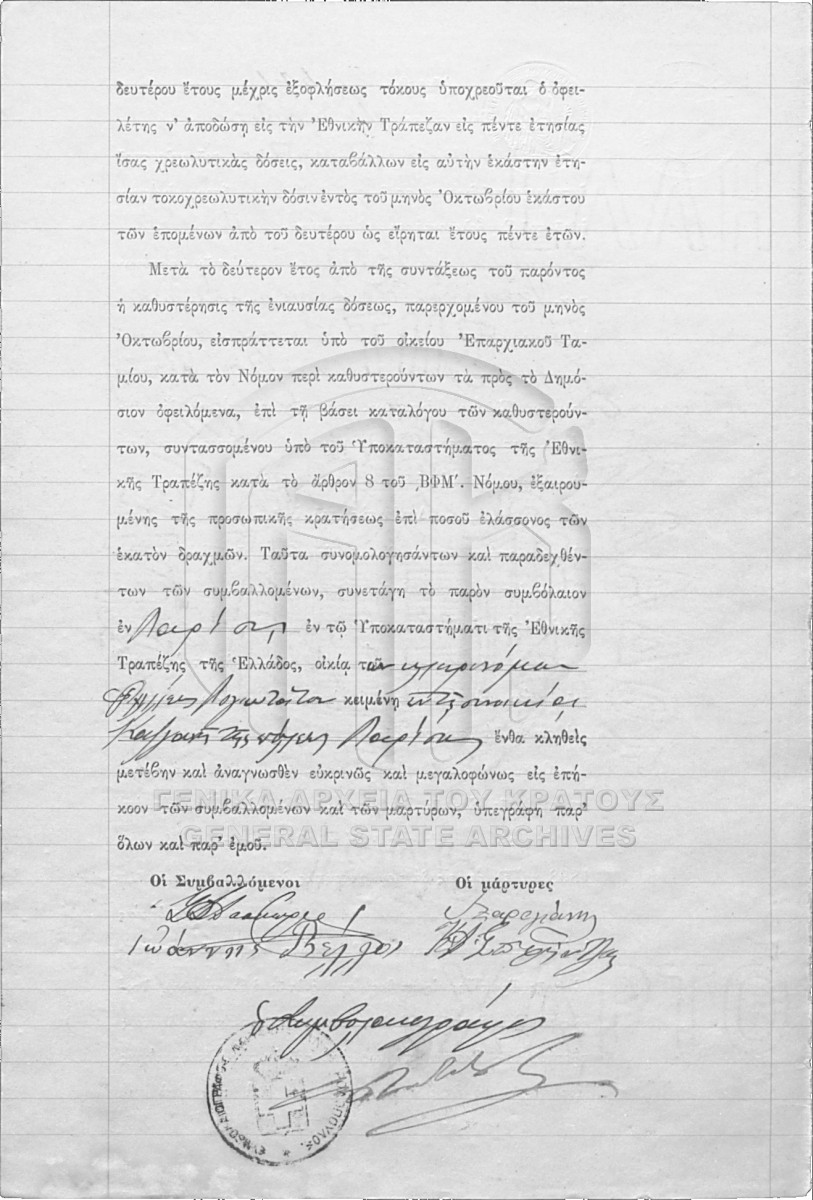 δευτέρου ἔτους μέχρις ἐξοφλήσεως τόκους ὑποχρεοῦται ὁ ὀφει-
λέτης ν' ἀποδώσῃ εἰς τὴν Ἐθνικὴν Τράπεζαν εἰς πέντε ἐτησίας
ἴσας χρεωλυτικὰς δόσεις, καταβάλλων εἰς αὐτὴν ἑκάστην ἐτη-
σίαν τοκοχρεωλυτικὴν δόσιν ἐντὸς τοῦ μηνὸς Ὀκτωβρίου ἑκάστου
τῶν ἑπομένων ἀπὸ τοῦ δευτέρου ὡς εἴρηται ἔτους πέντε ἐτῶν.
Μετὰ τὸ δεύτερον ἔτος ἀπὸ τῆς συντάξεως τοῦ παρόντος
ἡ καθυστέρησις τῆς ἐνιαυσίας δόσεως, παρερχομένου τοῦ μηνὸς
Ὀκτωβρίου, εἰσπράττεται ὑπὸ τοῦ οἰκείου Ἐπαρχιακοῦ Τα-
μίου, κατὰ τὸν Νόμον περὶ καθυστερούντων τὰ πρὸς τὸ Δημό-
σιον ὀφειλόμενα, ἐπὶ τῇ βάσει καταλόγου τῶν καθυστερούν-
των, συντασσομένου ὑπὸ τοῦ Ὑποκαταστήματος τῆς Ἐθνι-
κῆς Τραπέζης κατὰ τὸ ἄρθρον 8 τοῦ ͵ΒΦΜʹ. Νόμου, ἐξαιρου-
μένης τῆς προσωπικῆς κρατήσεως ἐπὶ ποσοῦ ἐλάσσονος τῶν
ἑκατὸν δραχμῶν. Ταῦτα συνομολογησάντων καὶ παραδεχθέν-
των τῶν συμβαλλομένων, συνετάγη τὸ παρὸν συμβόλαιον
ἐν Λαρίσῃ ἐν τῷ Ὑποκαταστήματι τῆς Ἐθνικῆς
Τραπέζης τῆς Ἑλλάδος, οἰκίᾳ τῶν κληρονόμων
κειμένῃ συνοικίᾳ
τῆς πόλεως Λαρίσης ἔνθα κληθεὶς
μετέβην καὶ ἀναγνωσθὲν εὐκρινῶς καὶ μεγαλοφώνως εἰς ἐπή-
κοον τῶν συμβαλλομένων καὶ τῶν μαρτύρων, ὑπεγράφη παρ'
ὅλων καὶ παρ' ἐμοῦ.
ΓΕΝΙΚΑ ΑΡΧΕΙΑ ΤΟΥ ΚΡΑΤΟΥΣ
GENERAL STATE ARCHIVES
Οἱ Συμβαλλόμενοι Οἱ μάρτυρες
Ἰωάννης Βέλλος
ὁ Συμβολαιογράφος